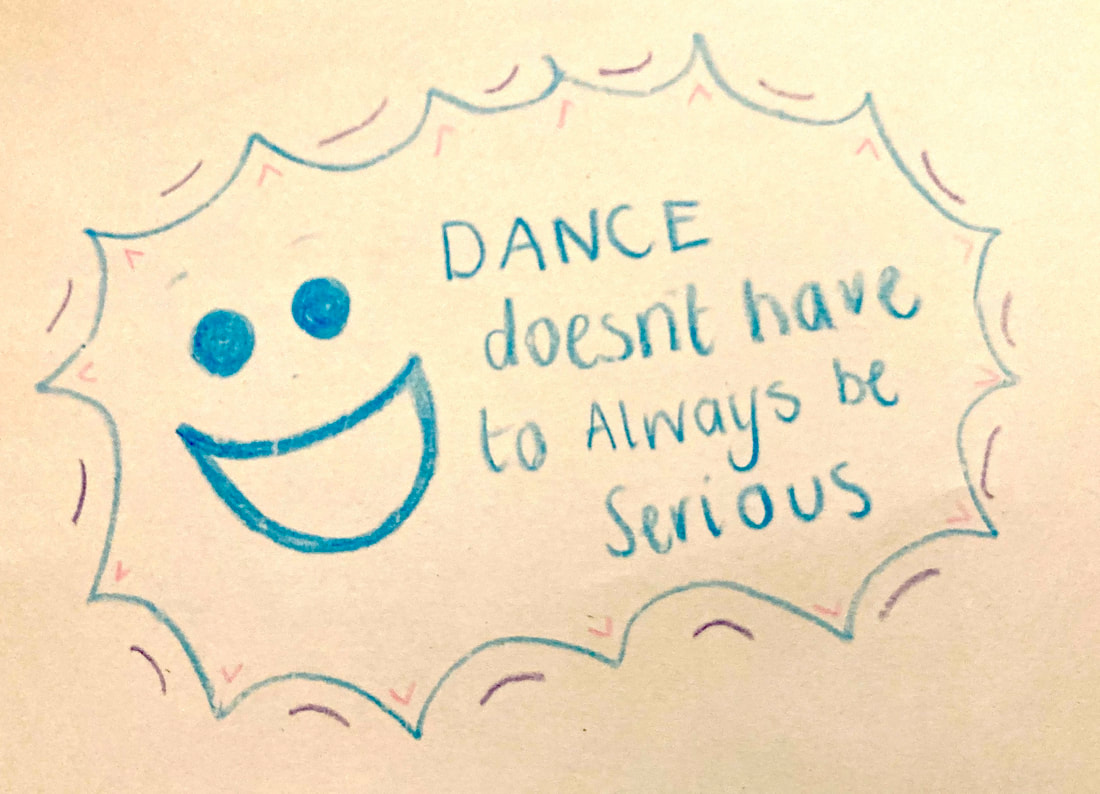 DANCE
doesnt have
to Always be
Serious